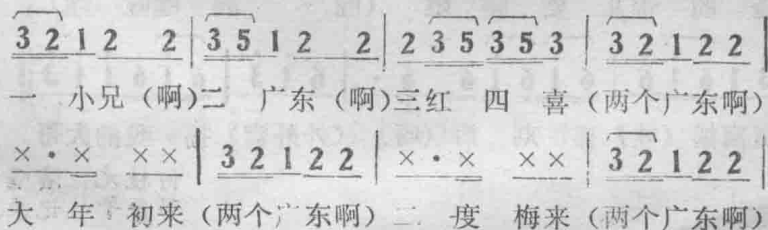 3 2 1 2 2 | 3 5 1 2 2 | 2 3 5 3 5 3 | 3 2 1 2 2 |
一 小兄（啊）二 广东（啊）三红 四 喜（两个广东啊）
× · × × × | 3 2 1 2 2 | × · × × × | 3 2 1 2 2 |
大 年 初来（两个广东啊） 二 度 梅来（两个广东啊）